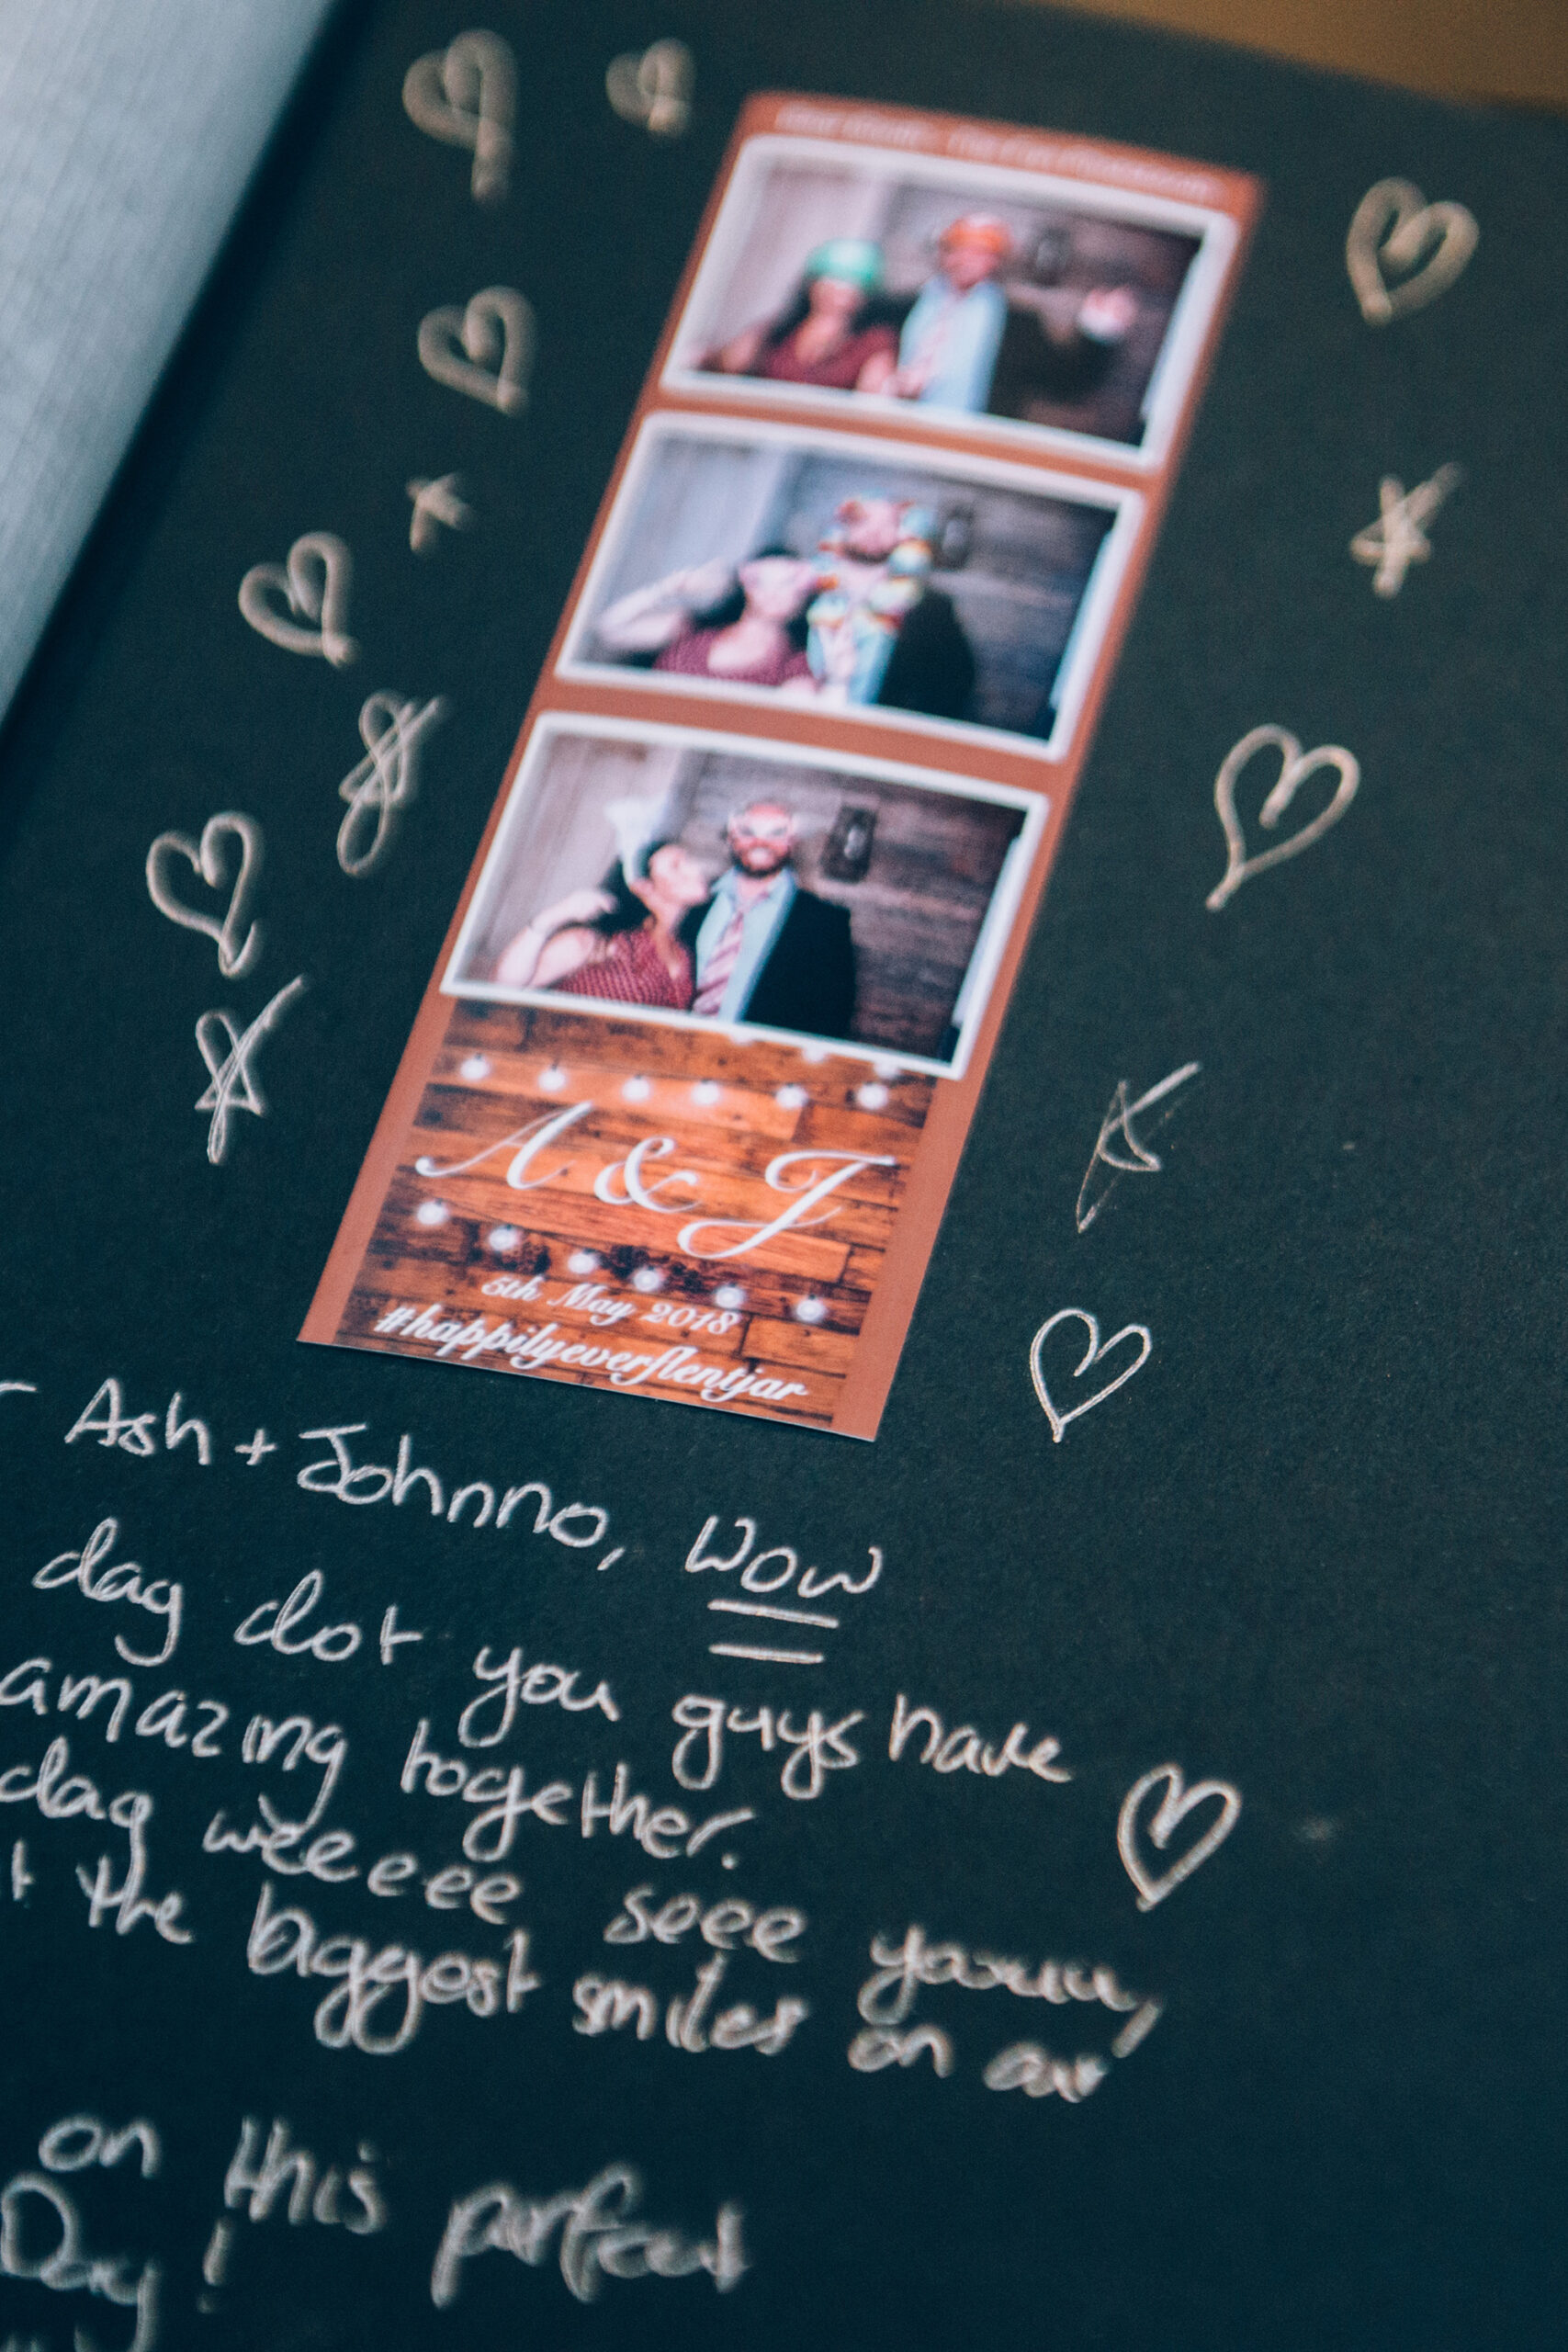 A & J
5th May 2018
#happilyeverflentjar
Ash + Johnno, WOW
dag dot you guys have
amazing together.
dag weeeee seee
the biggest smiles on our
on this perfect
Day!